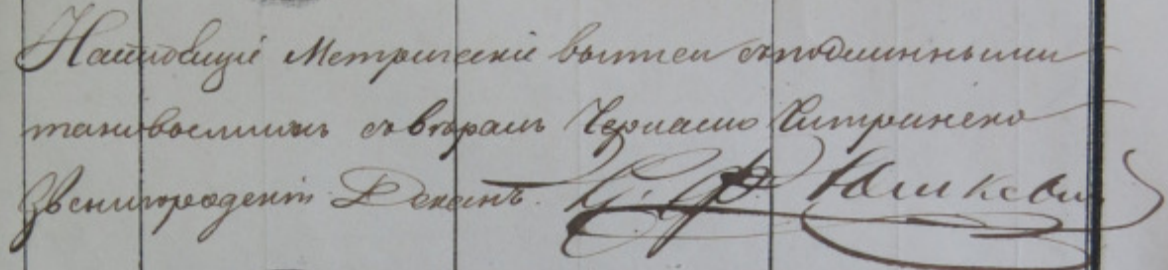 Настоящіе Метрическіе выписи съ подлинными
таковыми свѣрялъ Черкаско Чигиринско
Звенигородскій Деканъ.